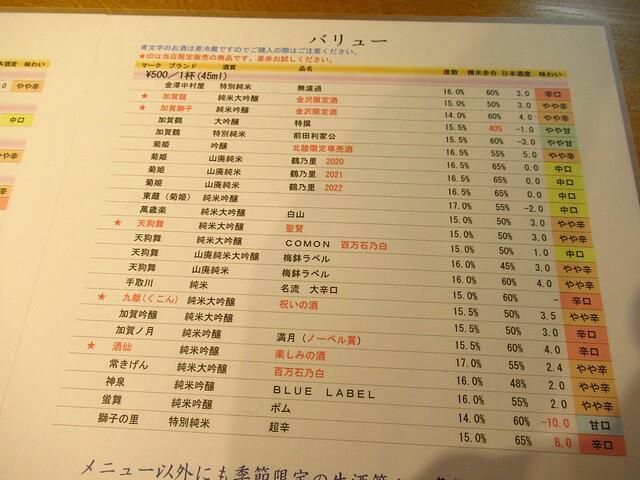 バリュー
青文字のお酒は要冷蔵ですのでご購入の際はご注意ください。
★印は当店限定販売の商品です。是非お試しください。
本酒度 味わい
マーク ブランド 酒質 品名 度数 精米歩合 日本酒度 味わい
¥500／1杯(45ml)
金澤中村屋 特別純米 無濾過 16.0% 60% 3.0 辛口
★ 加賀龍 純米大吟醸 金沢限定酒 15.0% 50% 3.0 やや辛
★ 加賀獅子 純米吟醸 金沢限定酒 14.0% 60% 4.0 やや辛
加賀鶴 大吟醸 特撰 15.5% 40% -1.0 やや甘
加賀鶴 特別純米 前田利家公 15.5% 60% -3.0 やや甘
菊姫 吟醸 北陸限定専売酒 16.5% 55% 5.0 やや辛
菊姫 山廃純米 鶴乃里 2020 16.5% 65% 0.0 中口
菊姫 山廃純米 鶴乃里 2021 16.5% 65% 0.0 中口
菊姫 山廃純米 鶴乃里 2022 16.5% 65% 0.0 中口
東蔵（菊姫） 純米吟醸 17.0% 55% -2.0 中口
萬歳楽 純米大吟醸 白山 15.0% 50% 3.0 やや辛
★ 天狗舞 純米大吟醸 聖賢 15.5% 50% 3.0 やや辛
天狗舞 純米大吟醸 ＣＯＭＯＮ 百万石乃白 15.0% 50% 1.0 中口
天狗舞 山廃純米大吟醸 梅鉢ラベル 16.0% 45% 3.0 やや辛
天狗舞 山廃純米 梅鉢ラベル 16.0% 60% 4.0 やや辛
手取川 純米 名流 大辛口 15.0% 60% - 辛口
★ 九献（くこん） 純米大吟醸 祝いの酒 15.5% 50% 3.5 やや辛
加賀吟醸 純米吟醸 15.5% 50% 3.0 辛口
加賀ノ月 純米吟醸 満月（ノーベル賞） 15.5% 60% 4.0 辛口
★ 酒仙 純米吟醸 楽しみの酒 17.0% 55% 2.4 やや辛
常きげん 純米大吟醸 百万石乃白 16.0% 48% 2.0 やや辛
神泉 純米吟醸 ＢＬＵＥ ＬＡＢＥＬ 16.0% 55% 2.0 やや辛
蛍舞 純米吟醸 ポム 14.0% 60% -10.0 甘口
獅子の里 特別純米 超辛 15.0% 65% 8.0 辛口
メニュー以外にも季節限定の生酒等